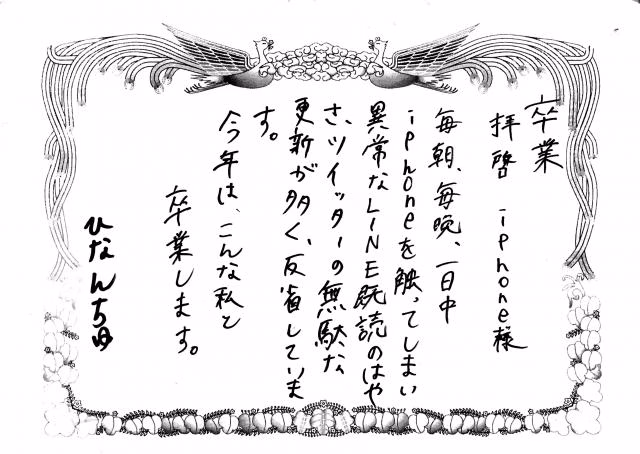 卒業
拝啓　iphone様
毎朝、毎晩、一日中
iphoneを触ってしまい
異常なLINE既読のはや
さ、ツイッターの無駄な
更新が多く、反省していま
す。
今年は、こんな私と
卒業します。
ひなんちゅ